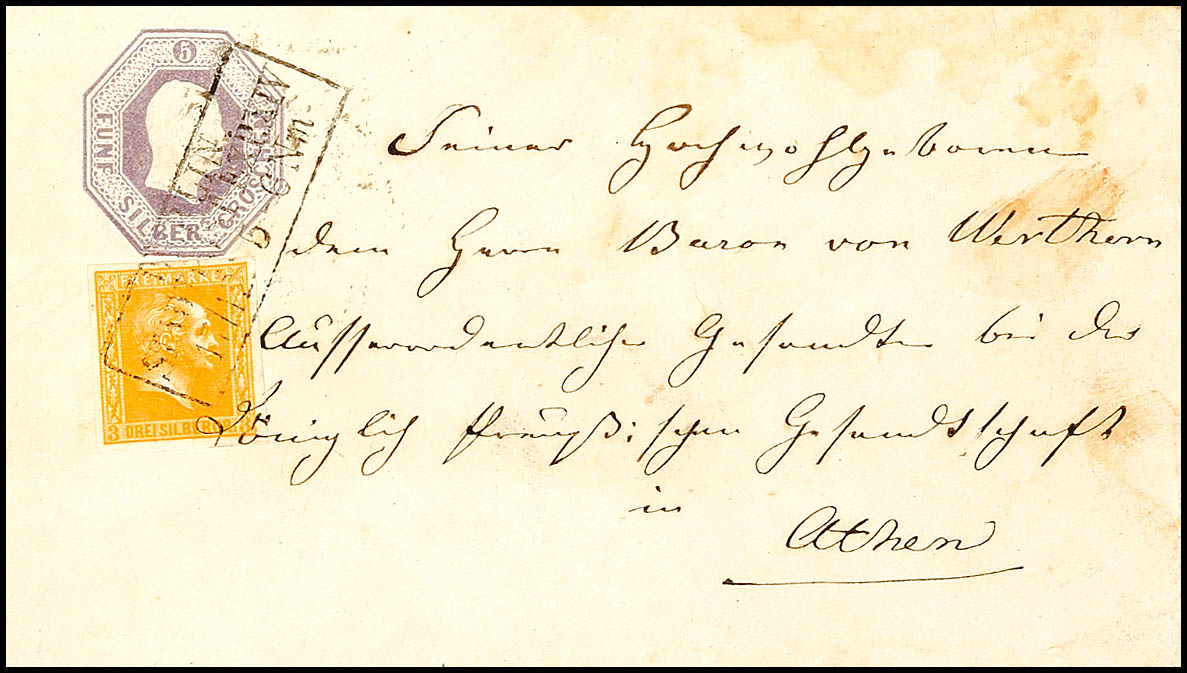 5
FÜNF SILBER GROSCH
FREIMARKE
3 DREI SILBERGR 3
Seiner Hochwohlgeboren
dem Herrn Baron von Werthern
Ausserordentlicher Gesandter bei der
Königlich Preußischen Gesandtschaft
in
Athen